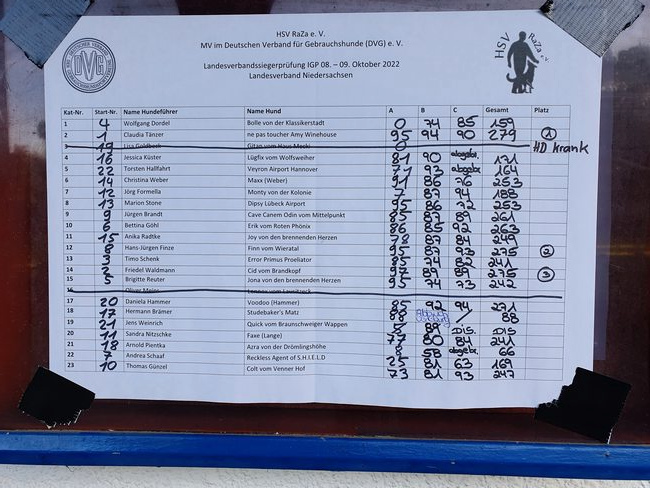 HSV RaZa e. V.
MV im Deutschen Verband für Gebrauchshunde (DVG) e. V.
Landesverbandssiegerprüfung IGP 08. – 09. Oktober 2022
Landesverband Niedersachsen
DVG
HSV RaZa e.V.
Kat-Nr. Start-Nr. Name Hundeführer Name Hund A B C Gesamt Platz
1 4 Wolfgang Dordel Bolle von der Klassikerstadt 0 74 85 159
2 1 Claudia Tänzer ne pas toucher Amy Winehouse 95 94 90 279 1
3 19 Lisa Goldbeck Gitan vom Haus Mecki 0 HD krank
4 16 Jessica Küster Lügfix vom Wolfsweiher 81 90 abgebr. 171
5 22 Torsten Hallfahrt Veyron Airport Hannover 71 93 abgebr. 164
6 14 Christina Weber Maxx (Weber) 91 86 76 253
7 12 Jörg Formella Monty von der Kolonie 7 87 94 188
8 13 Marion Stone Dipsy Lübeck Airport 95 86 72 253
9 9 Jürgen Brandt Cave Canem Odin vom Mittelpunkt 85 87 89 261
10 6 Bettina Göhl Erik vom Roten Phönix 86 85 92 263
11 15 Anika Radtke Joy von den brennenden Herzen 78 87 84 249
12 8 Hans-Jürgen Finze Finn vom Wieratal 95 88 93 275 2
13 3 Timo Schenk Error Primus Proeliator 85 74 82 241
14 2 Friedel Waldmann Cid vom Brandkopf 97 89 89 275 3
15 5 Brigitte Reuter Jona von den brennenden Herzen 95 74 73 242
16 Oliver Meier
17 20 Daniela Hammer Voodoo (Hammer) 85 92 94 271
18 17 Hermann Brämer Studebaker's Matz 88 Abbruch / 88
19 21 Jens Weinrich Quick vom Braunschweiger Wappen 5 89 DIS. DIS
20 11 Sandra Nitzschke Faxe (Lange) 77 80 84 241
21 18 Arnold Pientka Azra von der Drömlingshöhe 8 58 abgebr. 66
22 7 Andrea Schaaf Reckless Agent of S.H.I.E.L.D 25 81 63 169
23 10 Thomas Günzel Colt vom Venner Hof 73 81 93 247